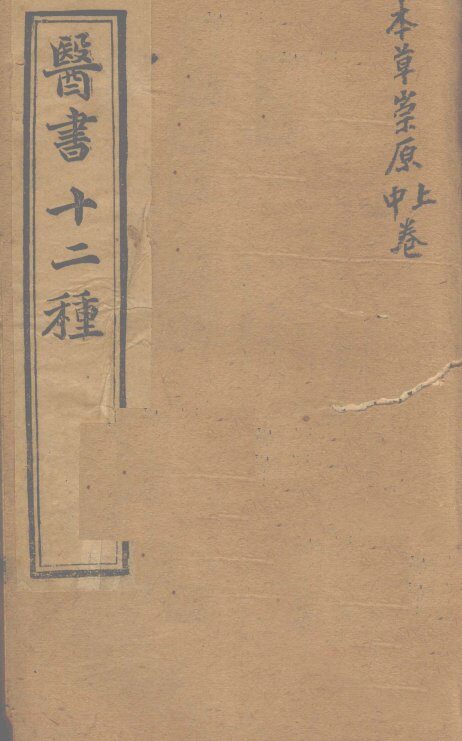 本草崇原上中卷
醫書十二種